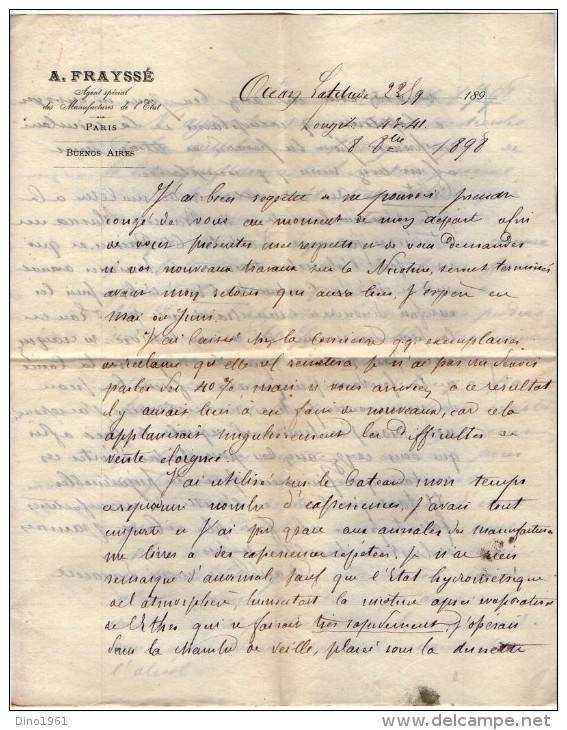 A. FRAYSSÉ
Agent spécial
des Manufactures de l'Etat
PARIS
BUENOS AIRES
Latitude 22/9 189
Longit. 43.41.
8 8bre 1898
J'ai bien regretté de ne pouvoir prendre
congé de vous au moment de mon départ afin
de vous présenter mes respects et de vous demander
si vos nouveaux travaux sur la Nicotine, seront terminés
avant mon retour qui aura lieu, j'espère en
Mai ou Juin.
J'ai laissé chez la Concierge qq. exemplaires
de réclame qu'elle vs remettra, je n'ai pas cru devoir
parler des 40% mais si vous arriviez à ce résultat
il y aurait lieu à en faire de nouveaux, car cela
applanirait singulièrement les difficultés de
vente éloignée.
J'ai utilisé sur le bateau mon temps
à nombre d'expériences, j'avais tout
emporté et j'ai pu grâce aux annales des manufactures
me livrer à des expériences répétées, je n'ai rien
remarqué d'anormal, sauf que l'état hydrométrique
de l'atmosphère, la nicotine après évaporation
de l'Ether qui se faisait très rapidement, j'opérais
dans la chambre de veille, placée sous la dunette
l'alcool
Dino1961
delcampe.net